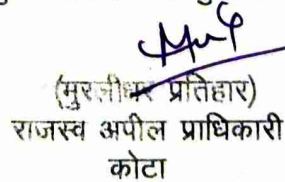 (मुरलीधर प्रतिहार)
राजस्व अपील प्राधिकारी
कोटा